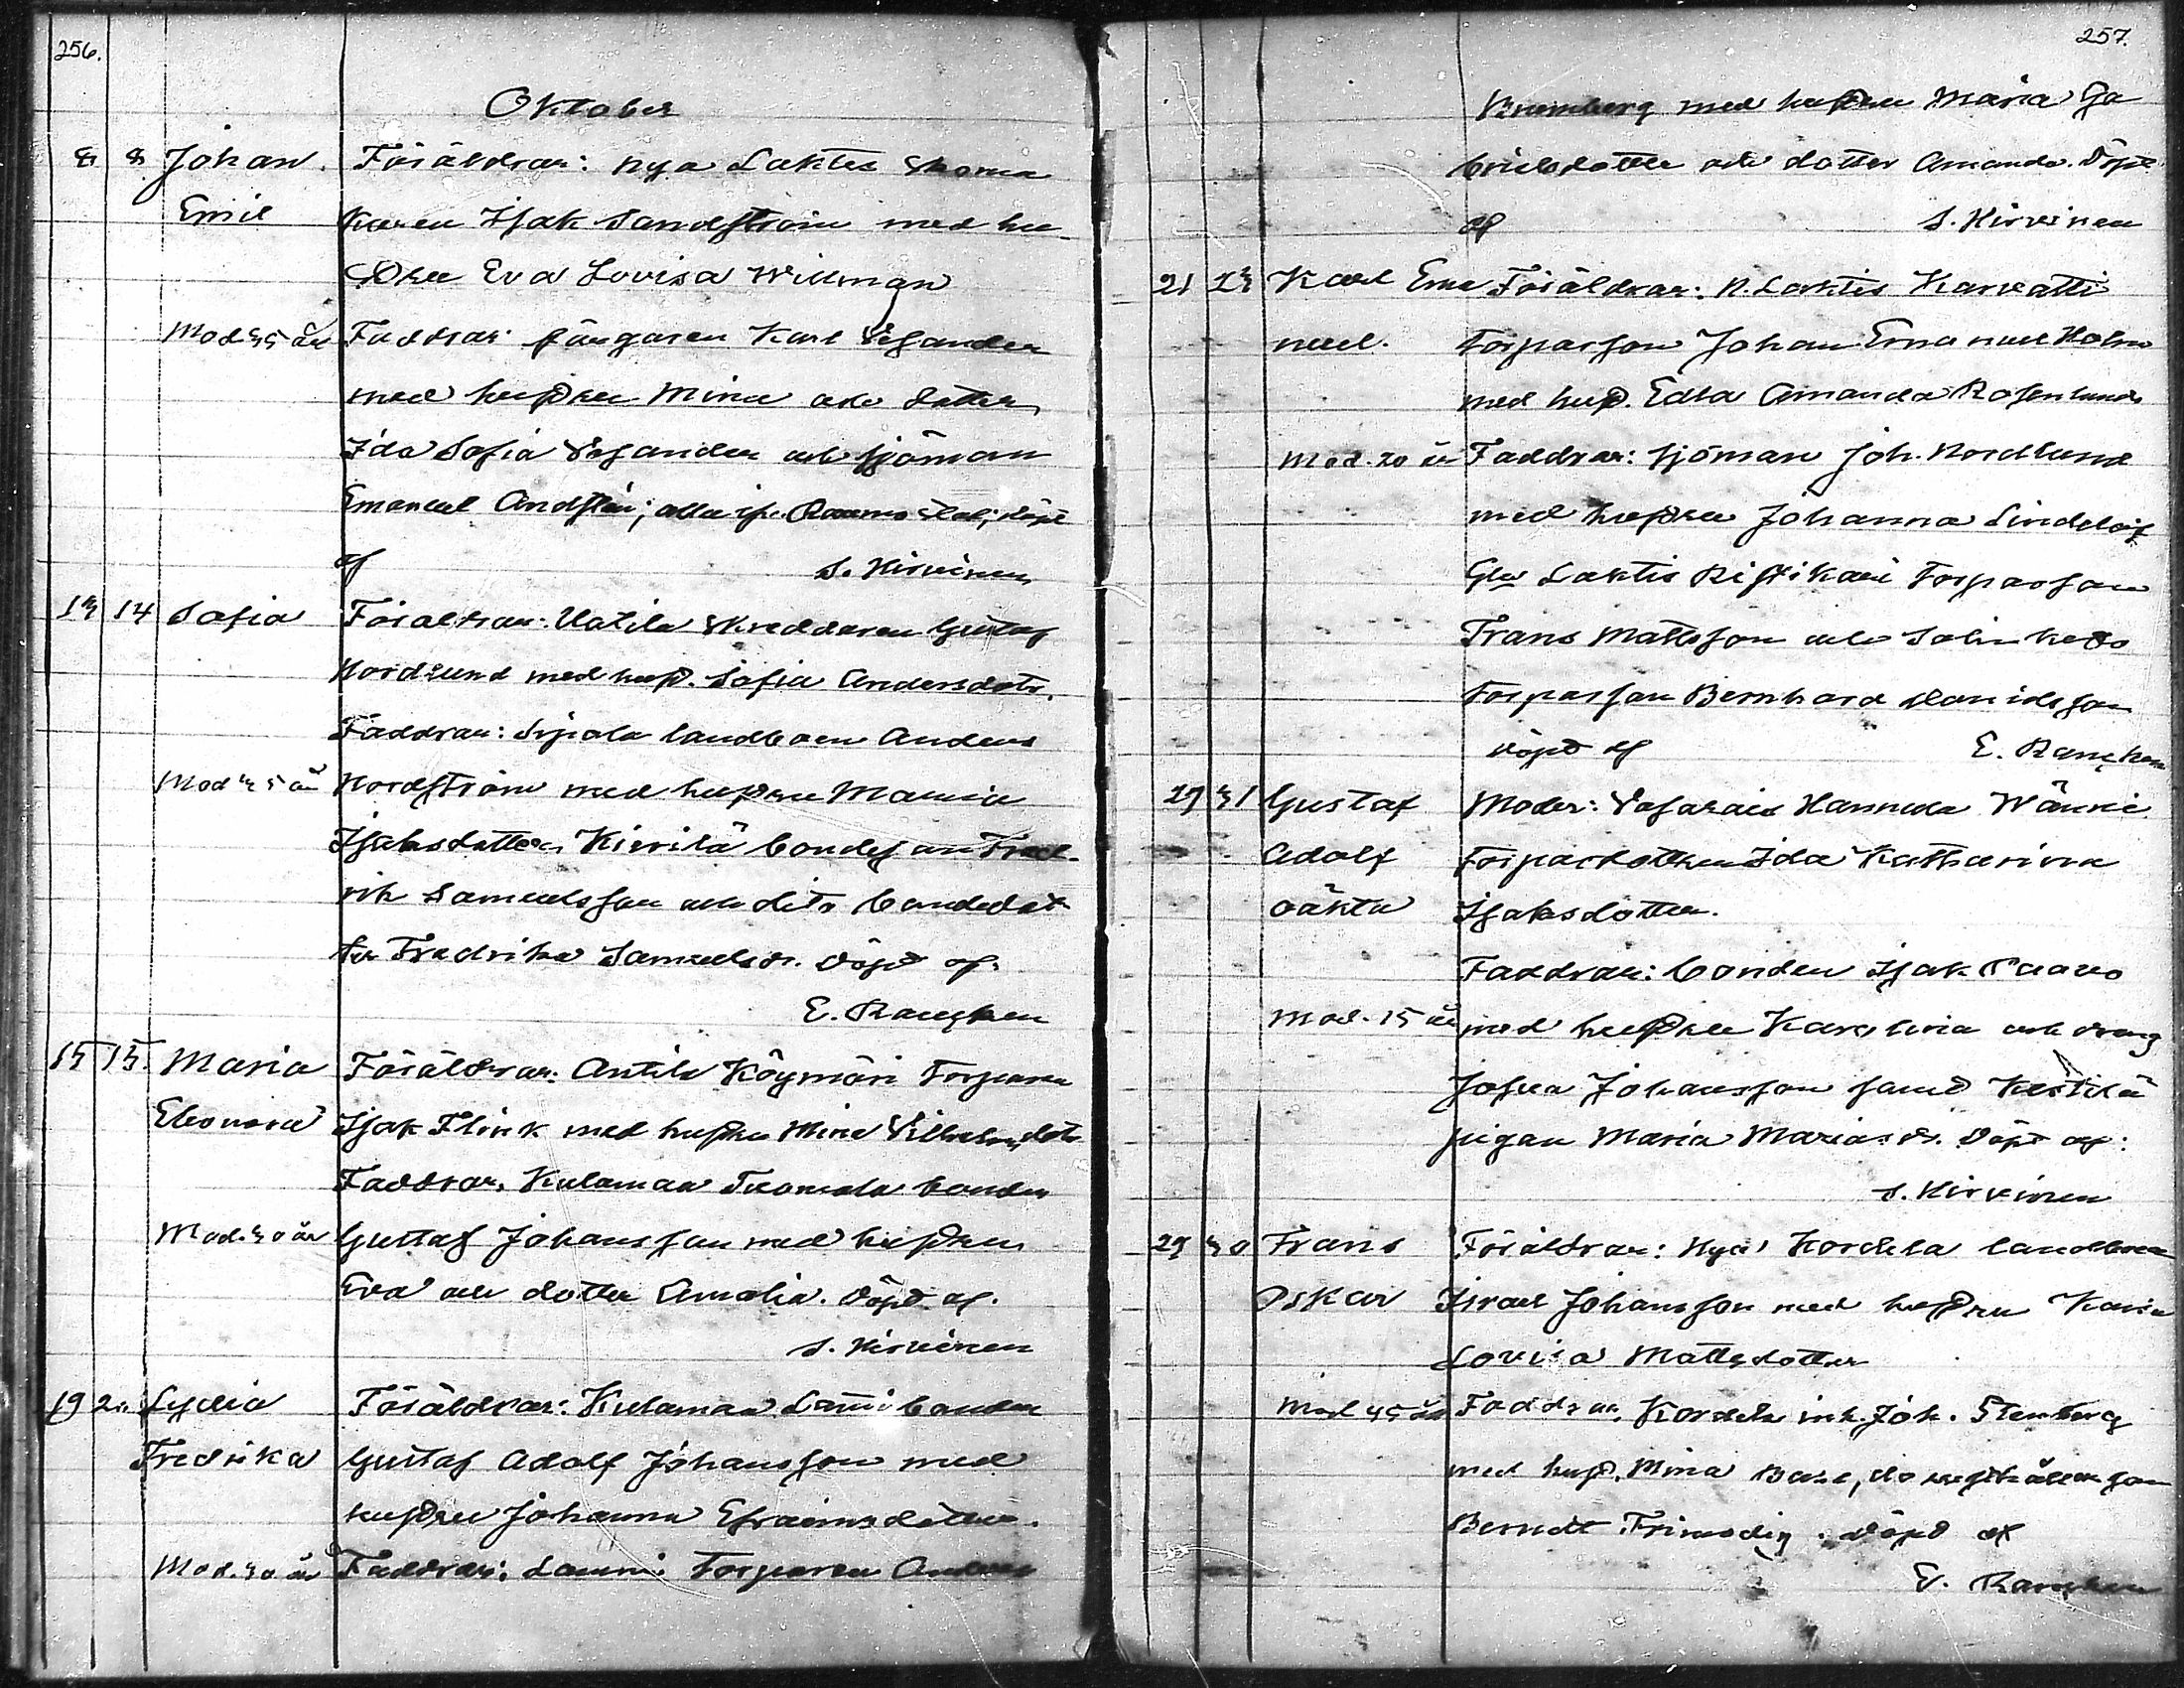 256.
Oktober
8 8 Johan Föräldrar: Nya Laktis Skoma
Emil karen Isak Sandström med hu
stru Eva Lovisa Willman
Mod 35 år Faddrar: fångaren Karl Vesander
med hustru Mina och dotter
Ida Sofia Vesander och sjöman
Emanuel ; alla fr. Raumo stad; döpt
af S. Hirvinen
13 14 Sofia Föräldrar: Uotila Skreddaren Gustaf
Nordlund med hust. Sofia Andersdotr.
Faddrar: Sipola landboen Anders
Mod 35 år Nordström med hustru Maria
Isaksdotter, Kivilä bondeson Fred-
rik Samuelsson och dito bondedot
ter Fredrika Samuelsdr. döpt af
E. Rancken
15 15. Maria Föräldrar: Antila Köymäri Torparen
Eleonora Isak Flink med hustru Mina Vilhelmsdotr
Faddrar, Kulamaa Tuomola bonden
Mod. 30 år Gustaf Johansson med hustru
Eva och dotter Amalia. Döpt af.
S. Hirvinen
19 20 Lydia Föräldrar: Kulamaa Lassi bonden
Fredrika Gustaf Adolf Johansson med
hustru Johanna Efraimsdotter.
Mod. 30 år Faddrar: Torparen Anders
257.
med hustru Maria Ga
brielsdotter och dotter Amanda. Döpt
af S. Hirvinen
21 23 Karl Ema Föräldrar: N. Laktis Karvatti
nuel. Torparson Johan Emanuel Holm
med hust. Edla Amanda Rosenlund
Mod. 20 år Faddrar: Sjöman Joh. Nordlund
med hustru Johanna Lindelöf
Gla Laktis Ristikari Torparson
Frans Mattsson och
Torparson Bernhard Davidsson
döpt af E. Rancken
29 31 Gustaf Moder: Vasarais Hannula Wänni
Adolf Torpardottren Ida Katharina
oäkta Isaksdotter.
Faddrar: bonden Isak Paavo
Mod. 15 år med hustru Karolina och dräng
Josua Johansson samt Kestilä
pigan Maria Mariasdr. Döpt af:
S. Hirvinen
29 30 Frans Föräldrar: Nya Kordela landboen
Oskar Israel Johansson med hustru Karin
Lovisa Mattsdotter
Mod 45 år Faddrar, Kordela inh. Joh. Stenberg
med hust. Mina ,
Berndt Frimodig. döpt af
E. Rancken